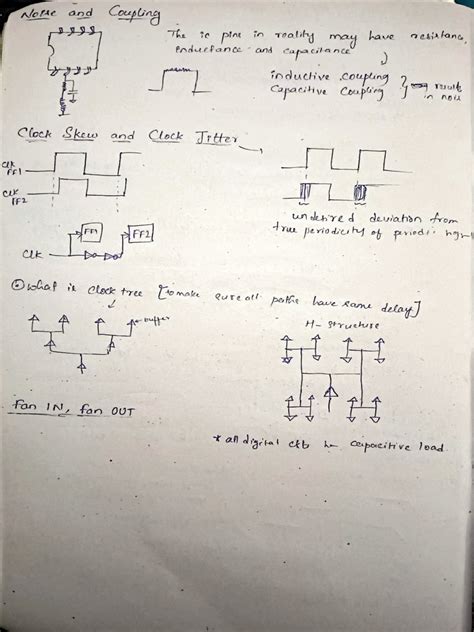 Noise and Coupling
The ic pins in reality may have resistance,
inductance and capacitance
inductive coupling
Capacitive Coupling
results
in noise
Clock Skew and Clock Jitter
Clk
FF1
Clk
FF2
FF1
FF2
Clk
undesired deviation from
true periodicity of periodic
what is clock tree [to make sure all paths have same delay]
Buffer
H-structure
Fan IN, fan OUT
* all digital ckts capacitive load.